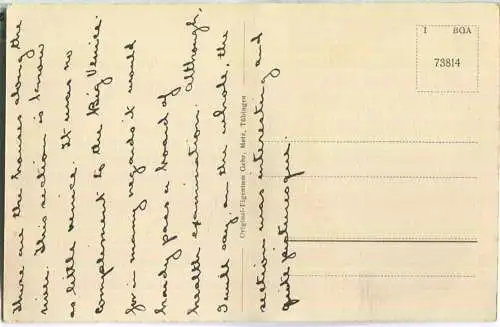 These are the homes along the
river. This section is know
as little venice. It was no
complement to the Big Venice
for in many regards it would
hardly pass a board of
health examination. Although,
I will say, on the whole, the
section was interesting and
quite picturesque.
Original-Eigentum Gebr. Metz, Tübingen
I BGA
73814